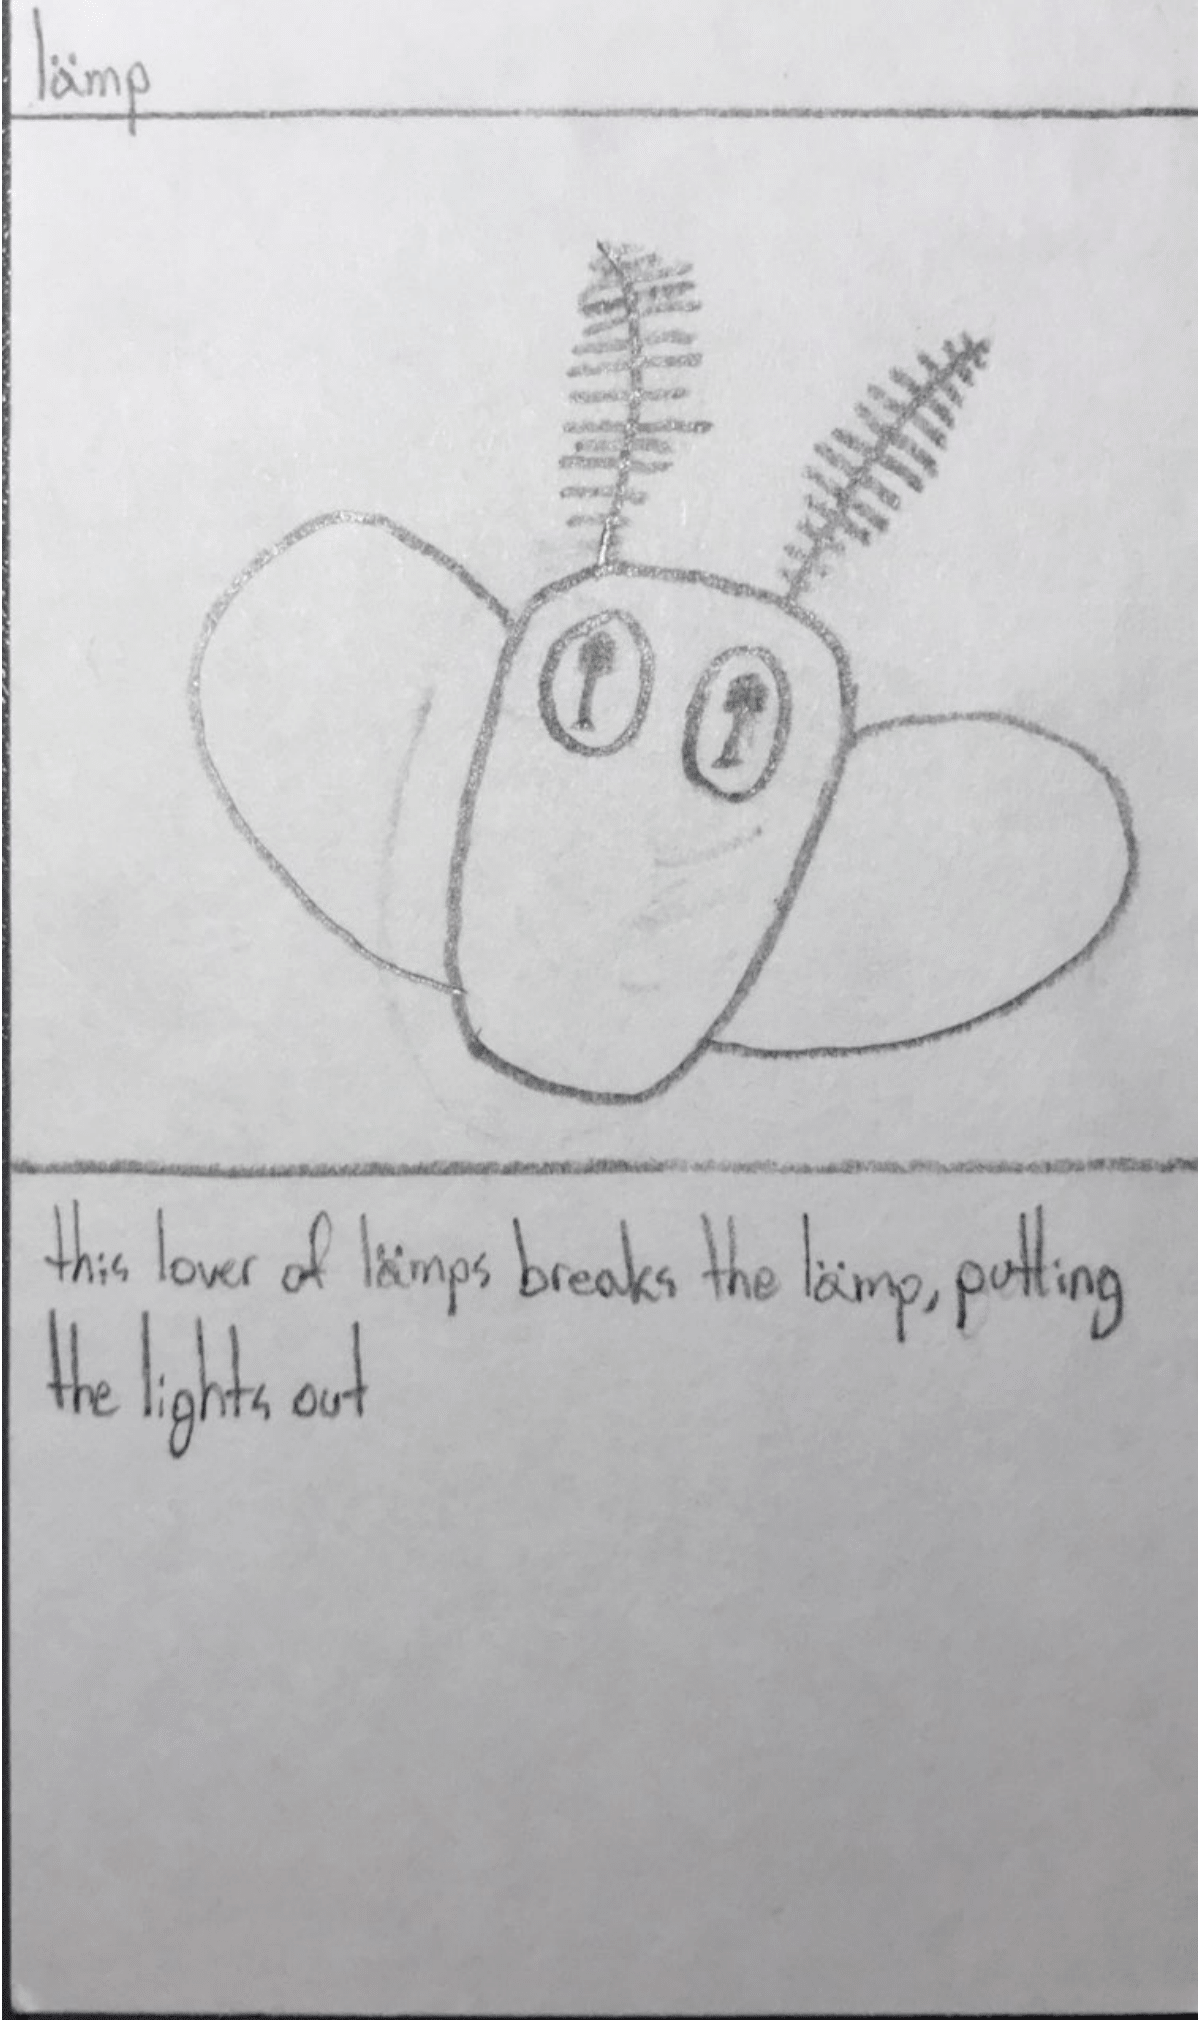 lämp
this lover of lämps breaks the lämp, putting
the lights out